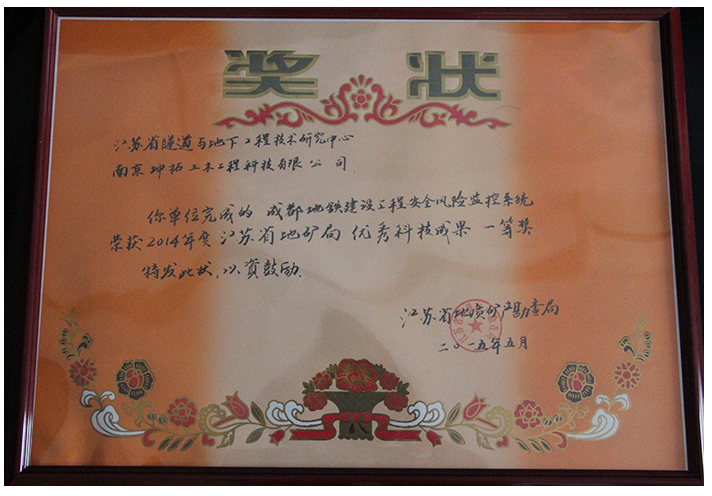 奖状
江苏省隧道与地下工程技术研究中心
南京坤拓土木工程科技有限公司
你单位完成的 成都地铁建设工程安全风险监控系统
荣获2014年度 江苏省地矿局 优秀科技成果 一等奖
特发此状,以资鼓励.
江苏省地质矿产勘查局
二〇一五年五月